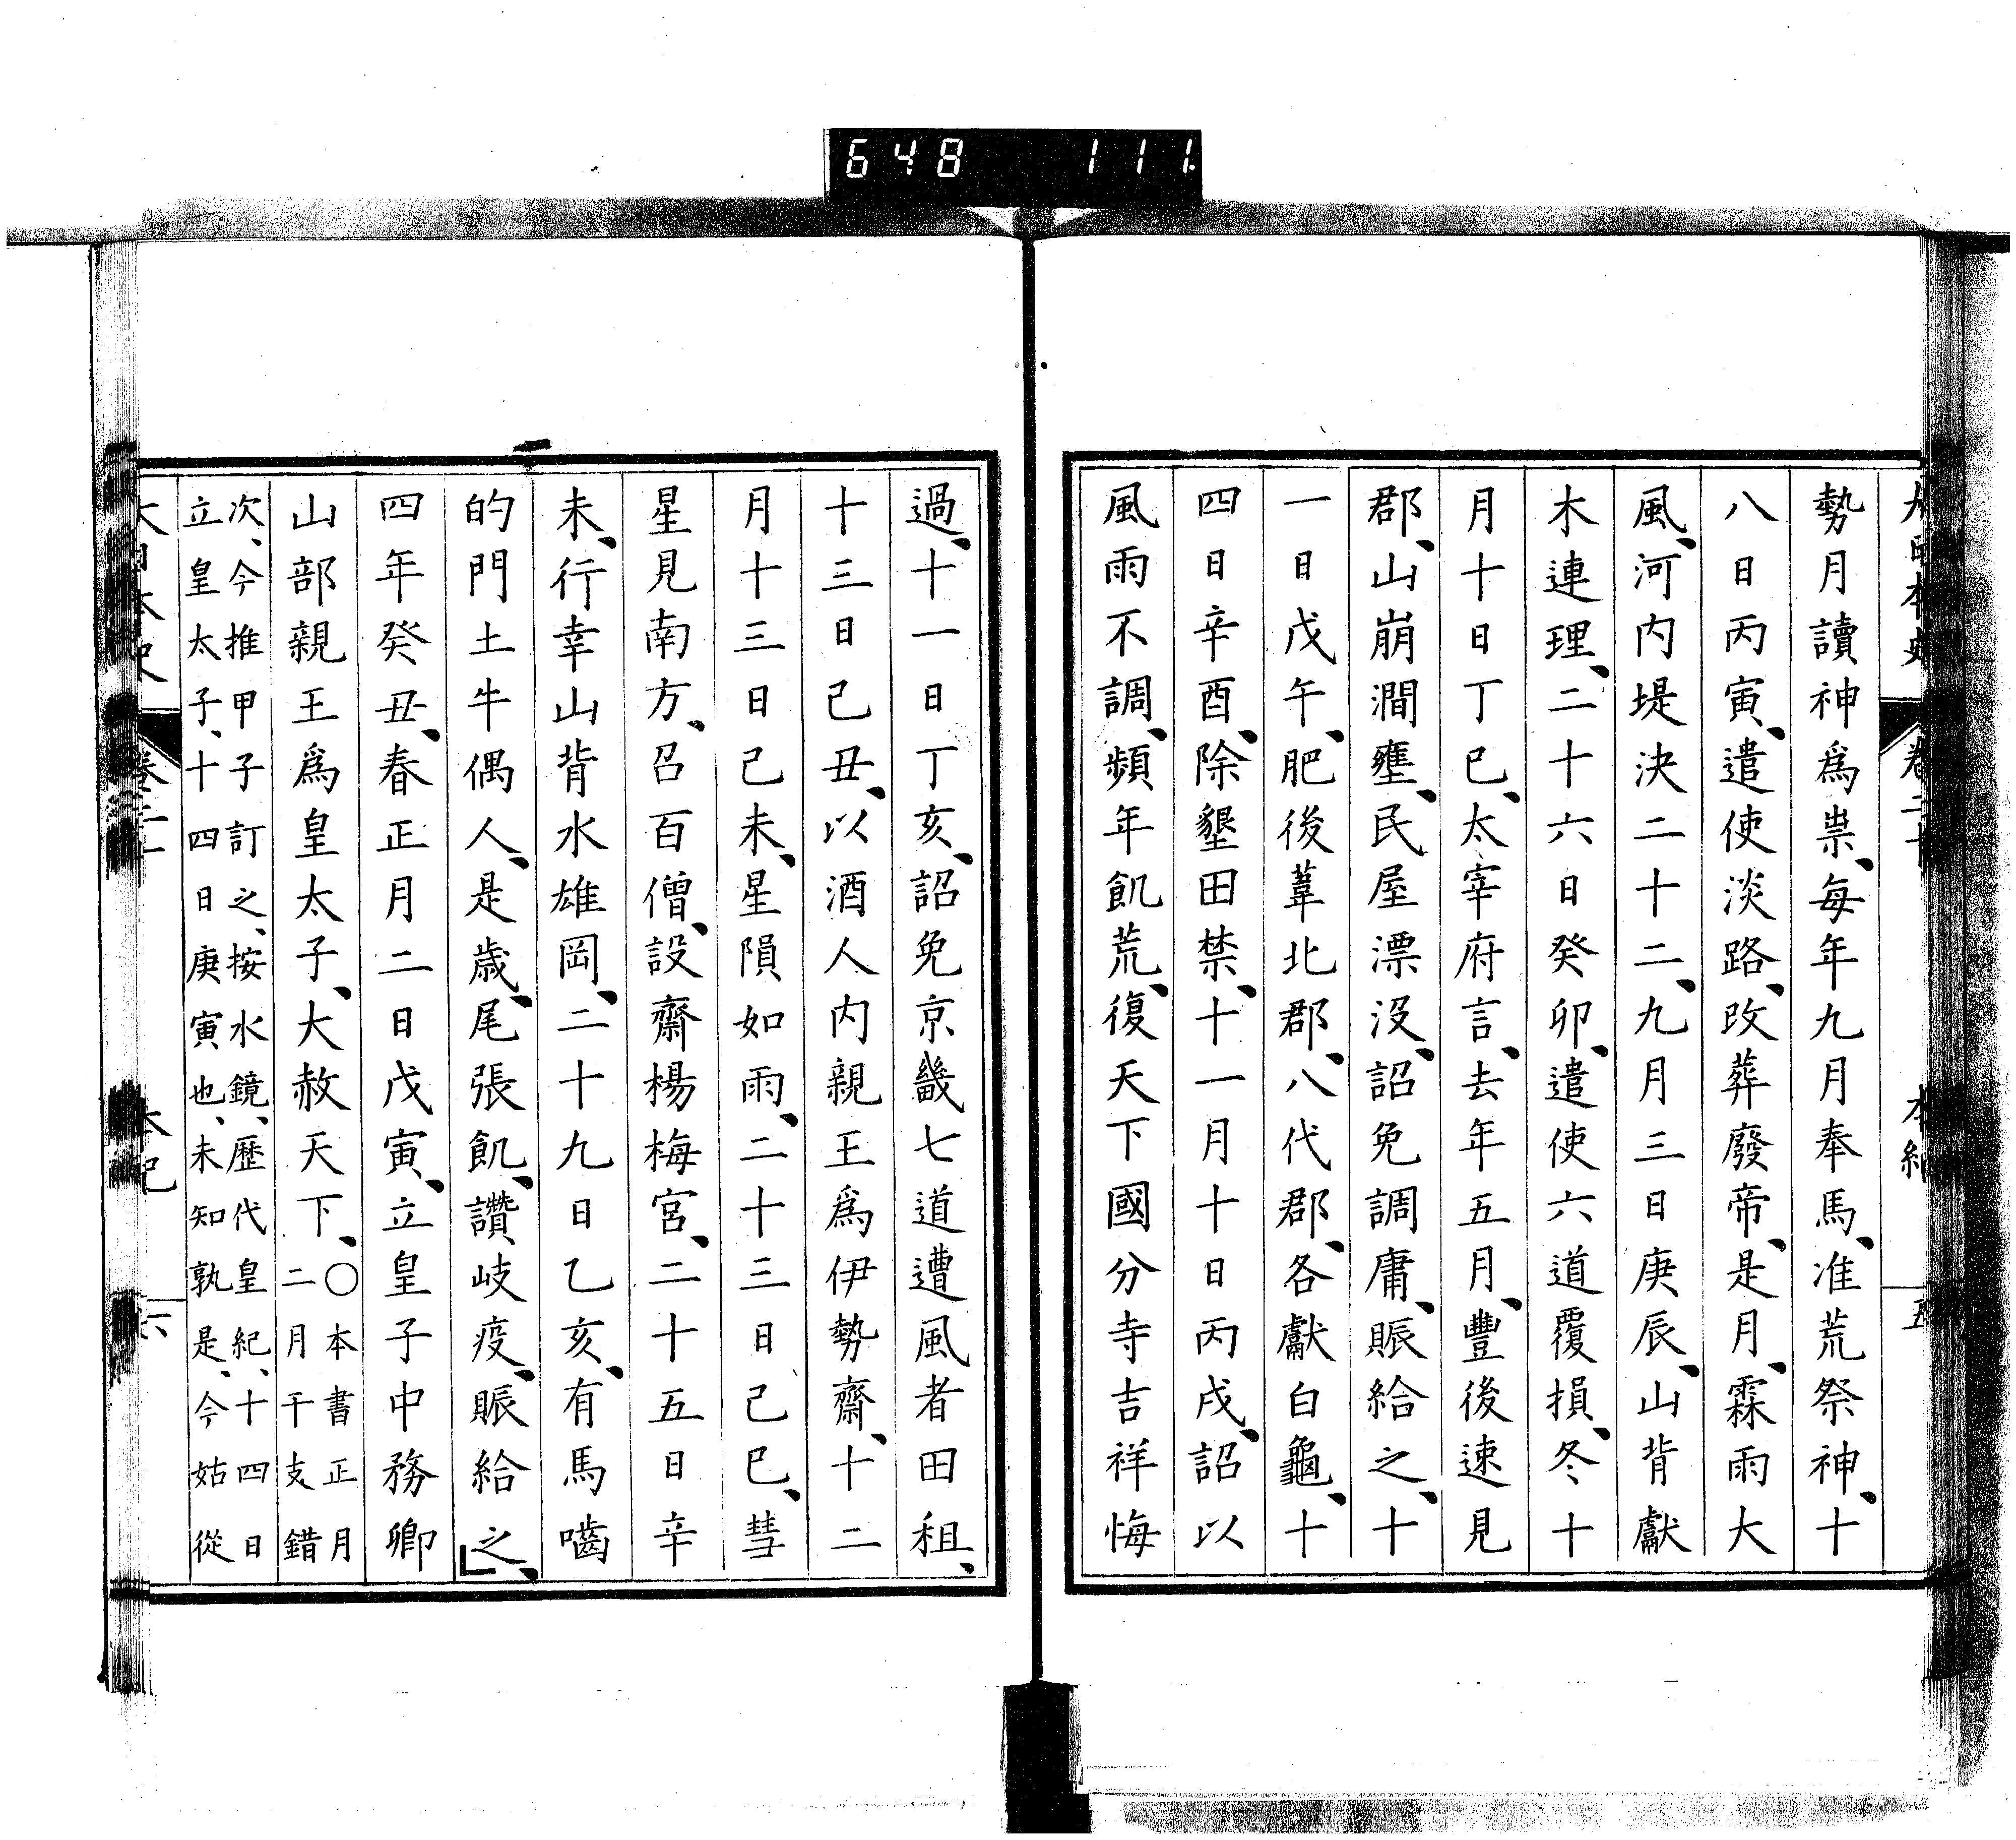 648 111
大日本史 卷二十 本紀 五
勢月讀神爲祟、每年九月奉馬、准荒祭神、十
八日丙寅、遣使淡路、改葬廢帝、是月、霖雨大
風、河内堤決二十二、九月三日庚辰、山背獻
木連理、二十六日癸卯、遣使六道覆損、冬十
月十日丁巳、太宰府言、去年五月、豐後速見
郡、山崩澗壅、民屋漂沒、詔免調庸、賑給之、十
一日戊午、肥後葦北郡、八代郡、各獻白龜、十
四日辛酉、除墾田禁、十一月十日丙戌、詔以
風雨不調、頻年飢荒、復天下國分寺吉祥悔
過、十一日丁亥、詔免京畿七道遭風者田租、
十三日己丑、以酒人内親王爲伊勢齋、十二
月十三日己未、星隕如雨、二十三日己巳、彗
星見南方、召百僧、設齋楊梅宮、二十五日辛
未、行幸山背水雄岡、二十九日乙亥、有馬嚙
的門土牛偶人、是歲、尾張飢、讚岐疫、賑給之、
四年癸丑、春正月二日戊寅、立皇子中務卿
山部親王爲皇太子、大赦天下、〇本書正月
二月干支錯
次、今推甲子訂之、按水鏡、歷代皇紀、十四日
立皇太子、十四日庚寅也、未知孰是、今姑從
大日本史 卷二十 本紀 六